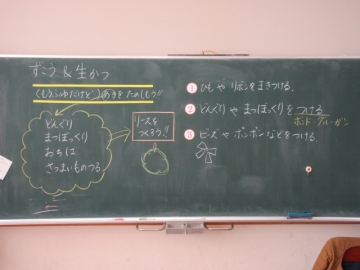 ずこう & 生かつ
(もうふゆだけど)あきをたのしもう!!
どんぐり
まつぼっくり
おちば
さつまいものつる
リースを
つくろう!!
① ひもやリボンをまきつける。
② どんぐりやまつぼっくりをつける
ボンド グルーガン
③ ビーズやポンポンなどをつける。